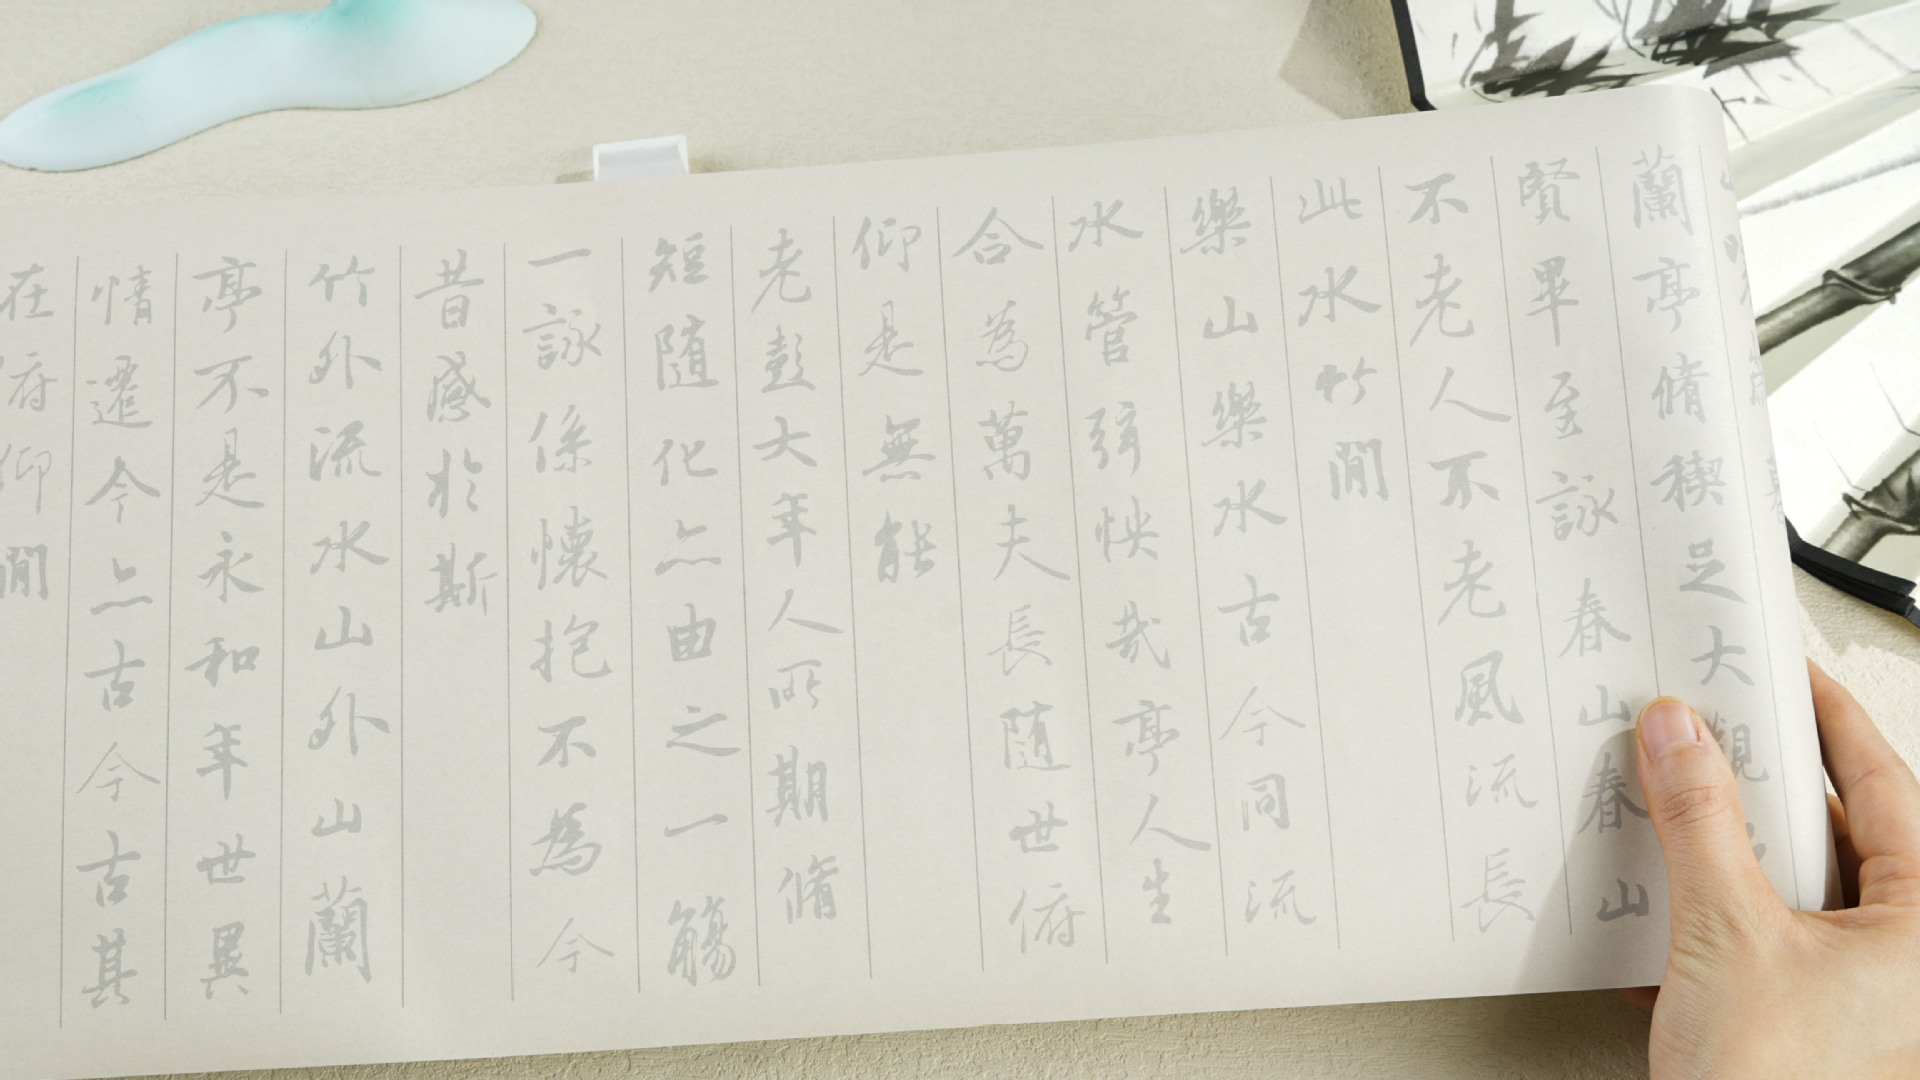 蘭亭脩稧足大觀
賢畢至詠春山春山
不老人不老風流長
此水竹閒
樂山樂水古今同流
水管弦怏哉亭人生
合為萬夫長随世俯
仰是無能
老彭大年人所期脩
短随化亦由之一觴
一詠係懷抱不為今
昔感於斯
竹外流水山外山蘭
亭不是永和年世異
情遷今亦古今古其
在俯仰閒